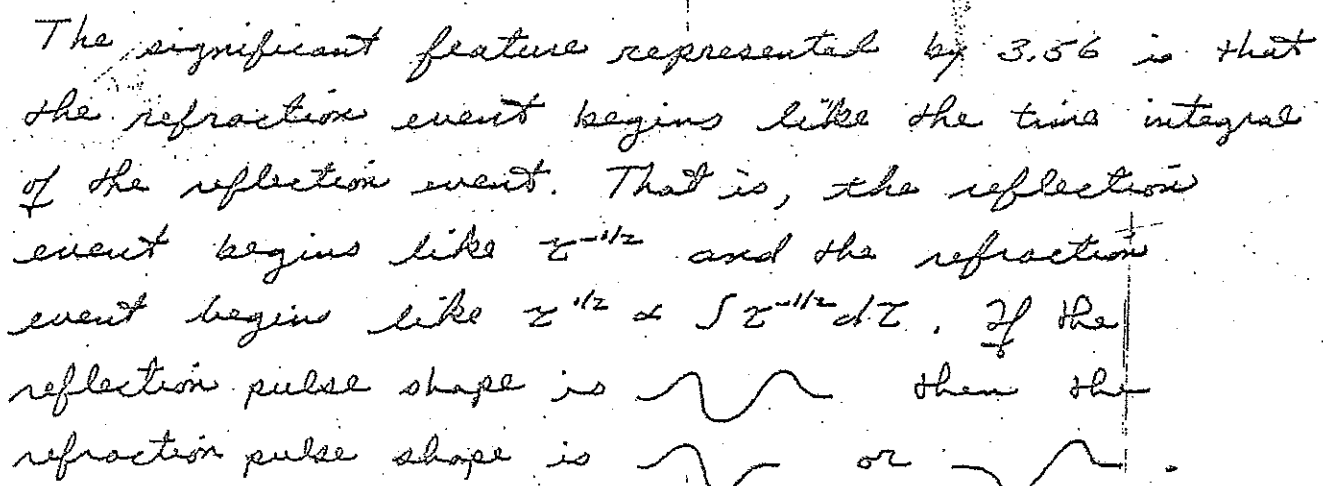 The significant feature represented by 3.56 is that
the refraction event begins like the time integral
of the reflection event. That is, the reflection
event begins like τ^-1/2 and the refraction
event begins like τ^1/2 ∝ ∫ τ^-1/2 dτ. If the
reflection pulse shape is then the
refraction pulse shape is or .